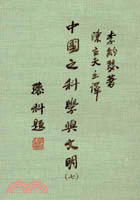 李約瑟著
陳立夫主譯
中國之科學與文明
(七)
孫科題